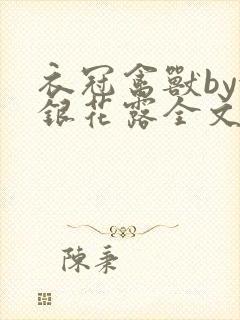 衣冠禽獸by
銀花露全文
陳秉